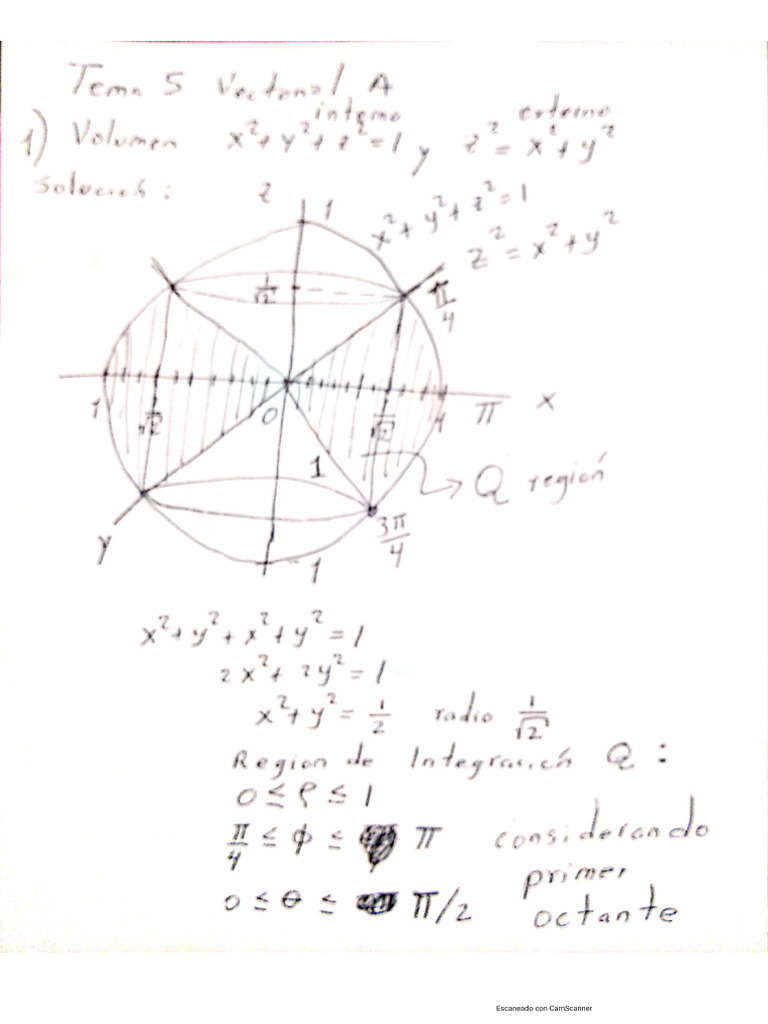 Tema 5 Vectorial A
interno externo
1) Volumen x²+y²+z²=1 y z²=x²+y²
Solución:
z
1
x²+y²+z²=1
z²=x²+y²
1/√2
π/4
1
1/√2
0
1/√2
1
π
x
1
Q región
y
3π/4
-1
x²+y²+x²+y²=1
2x²+2y²=1
x²+y²=1/2 radio 1/√2
Region de Integración Q:
0≤ρ≤1
π/4≤ϕ≤ π considerando
primer
0≤θ≤ π/2 octante
Escaneado con CamScanner